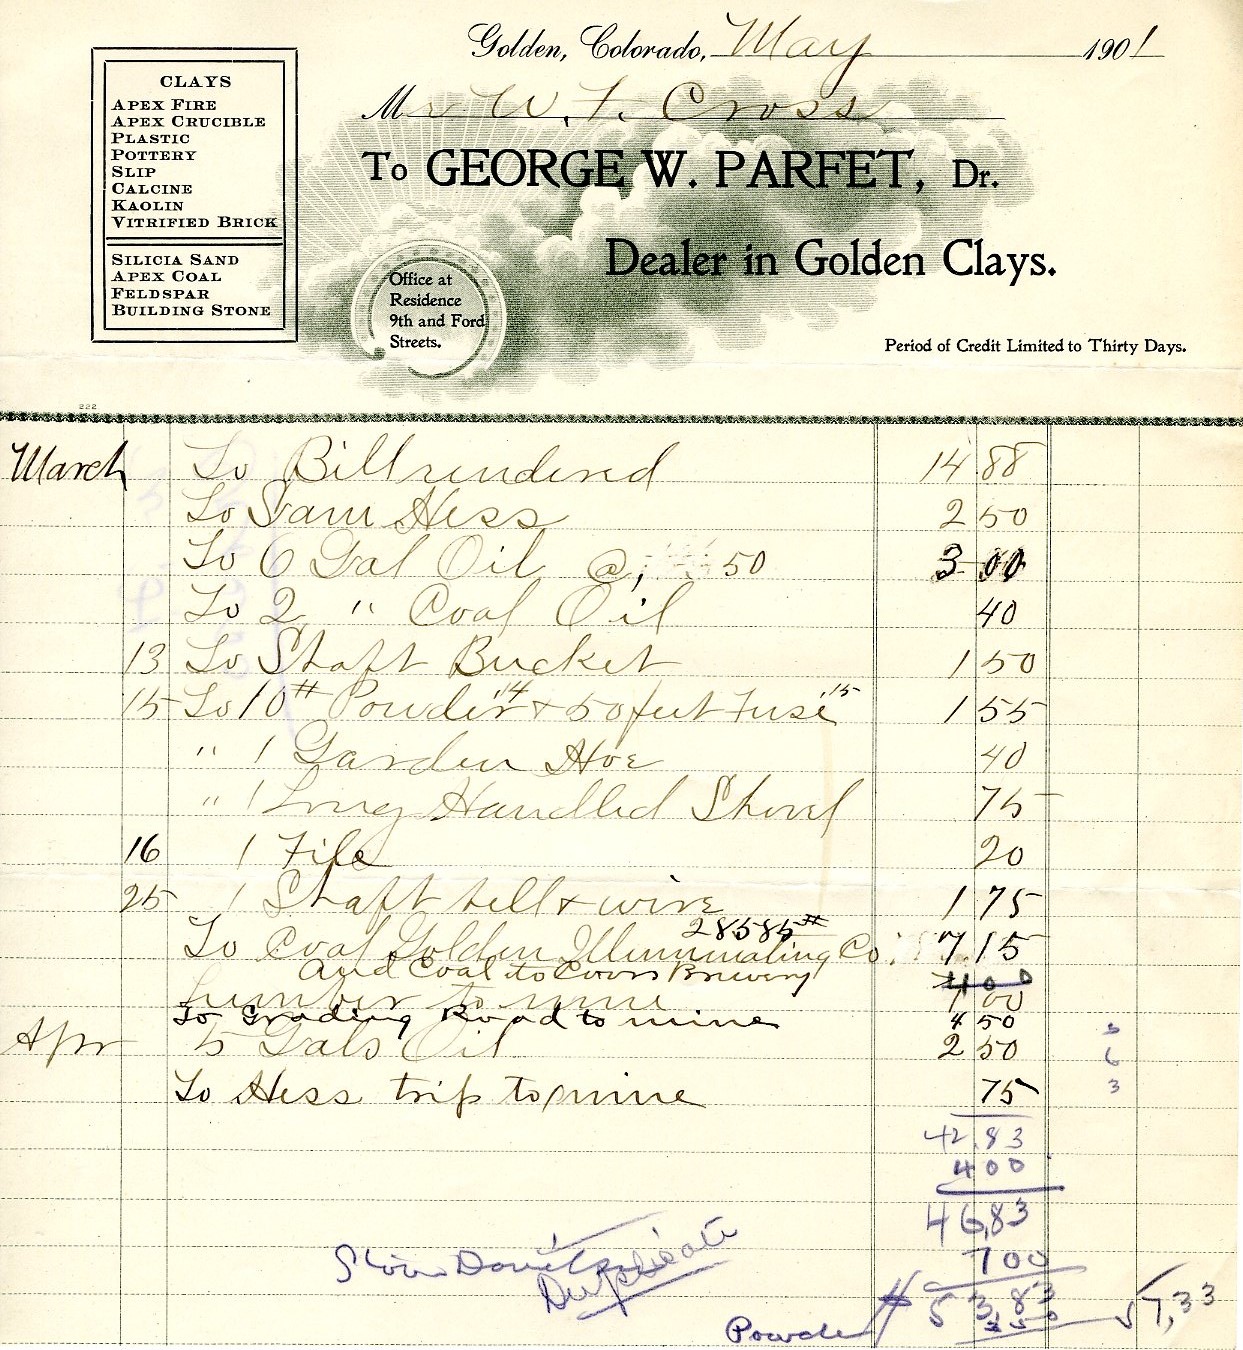 Golden, Colorado, May 1901
Mr W. F. Cross
To GEORGE W. PARFET, Dr.
Dealer in Golden Clays.
CLAYS
APEX FIRE
APEX CRUCIBLE
PLASTIC
POTTERY
SLIP
CALCINE
KAOLIN
VITRIFIED BRICK
SILICIA SAND
APEX COAL
FELDSPAR
BUILDING STONE
Office at
Residence
9th and Ford
Streets.
Period of Credit Limited to Thirty Days.
222
March To Bill rendered 14 88
To Sam Hess 2 50
To 6 Gal Oil @, 50 3 00
To 2 " Coal Oil 40
13 To Shaft Bucket 1 50
15 To 10# Powder "14 & 50 feet Fuse "15 1 55
" 1 Garden Hoe 40
" 1 Long Handled Shovel 75
16 1 File 20
25 1 Shaft bell & wire 1 75
28585#
To Coal Golden Illuminating Co. 7 15
and Coal to Coors Brewery 4 00
Lumber to mine 1 00
To Grading Road to mine 4 50 5
Apr 5 Gals Oil 2 50 6
To Hess trip to mine 75 3
42.83
4 00
46,83
7 00
Duplicate
$ 53,83 57,33
Powder 3 50